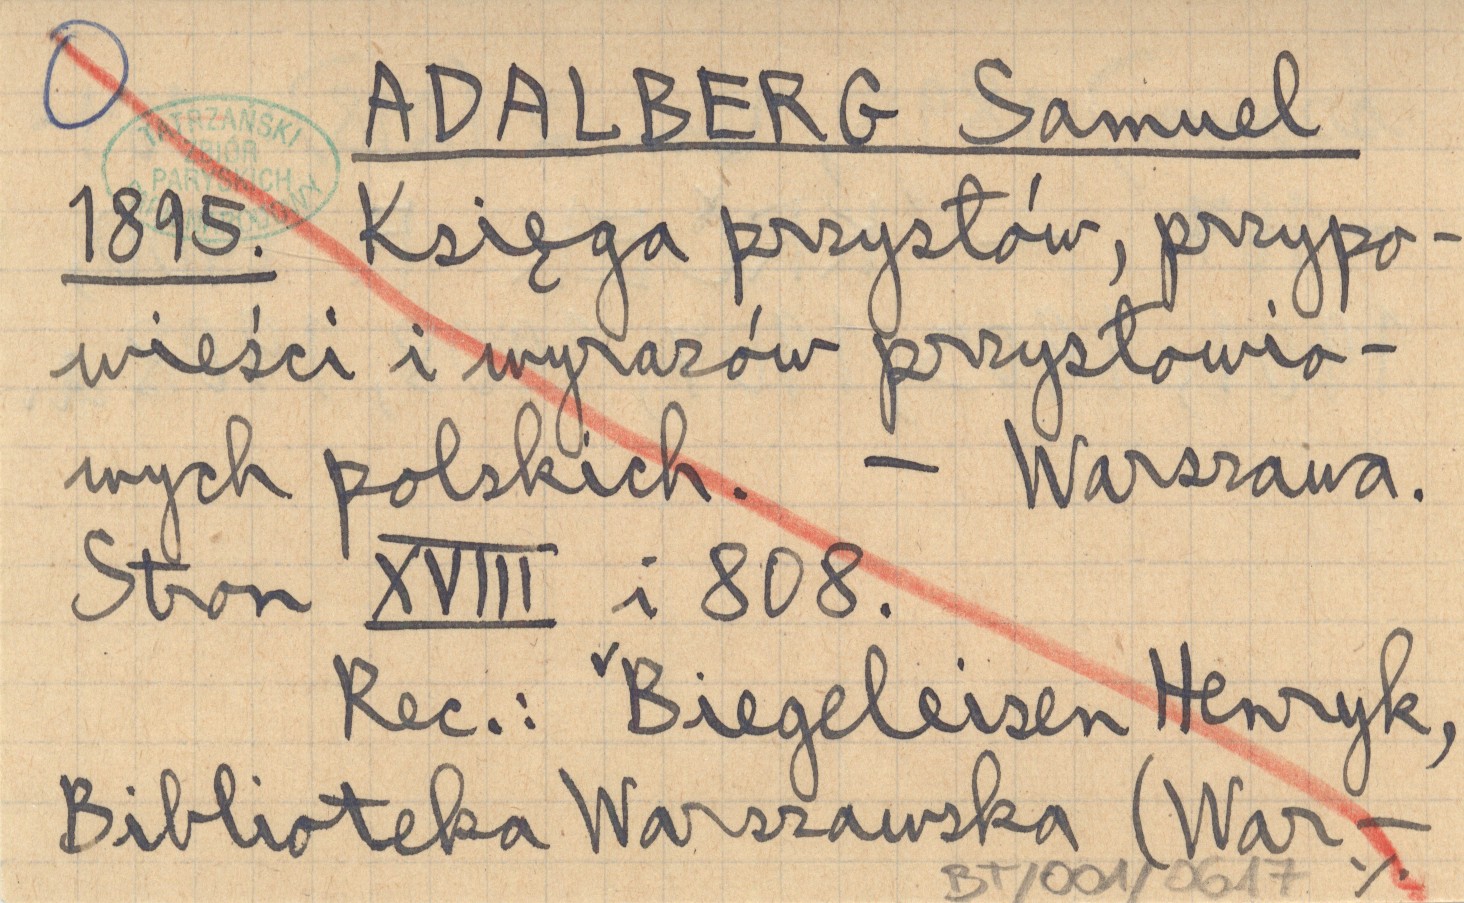 ADALBERG Samuel
TATRZAŃSKI
ZBIÓR
PARYSKICH
1895. Księga przysłów, przypo-
wieści i wyrazów przysłowio-
wych polskich. — Warszawa.
Stron XVIII i 808.
Rec.: ✓Biegeleisen Henryk,
Biblioteka Warszawska (War-
BT/001/0617 ./.